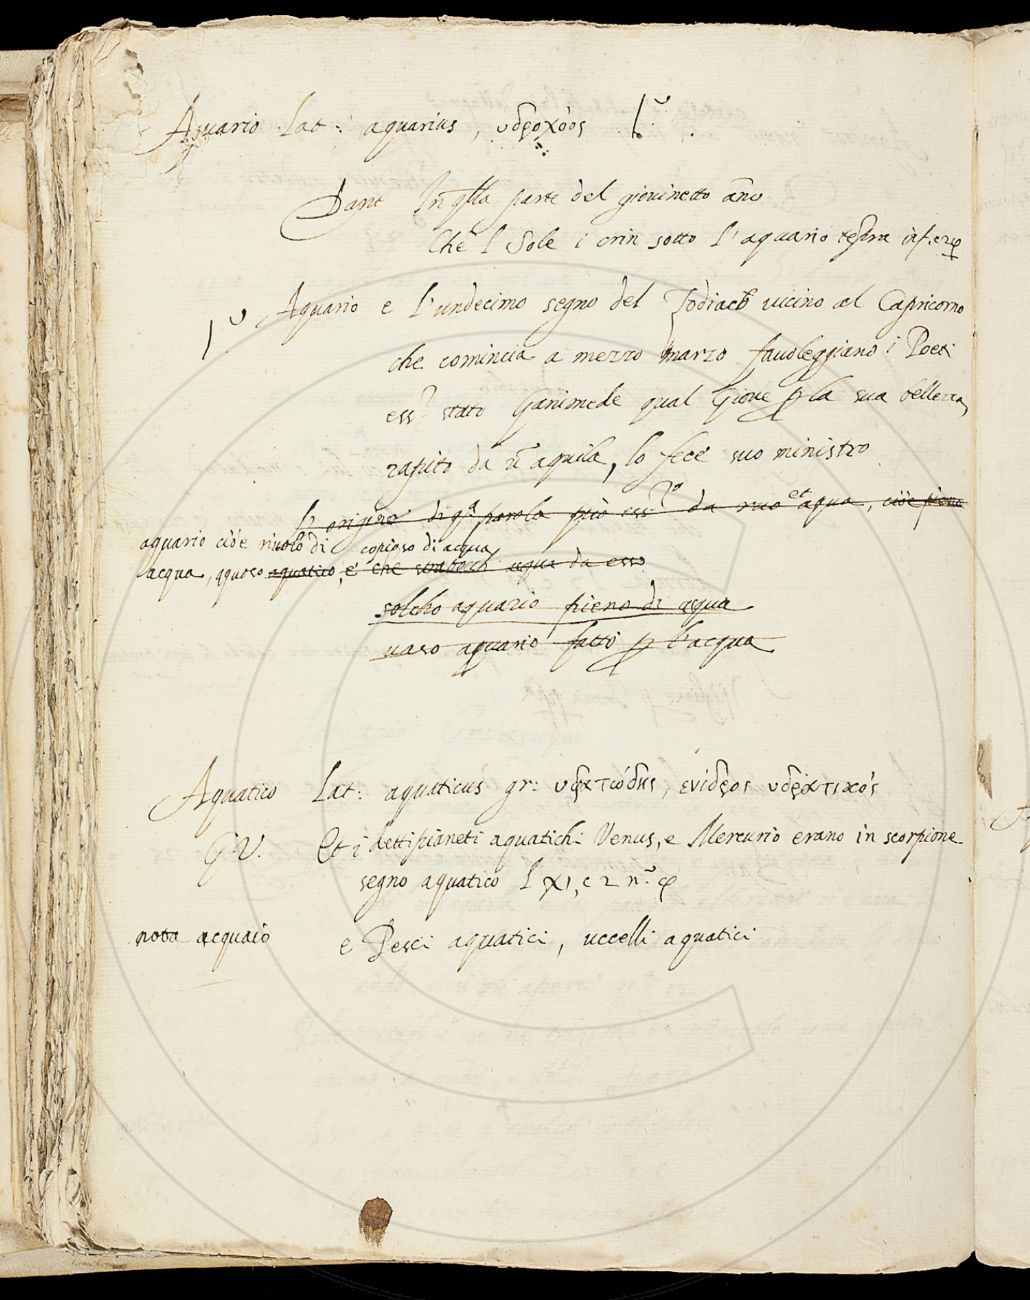 Aquario Lat: aquarius, ὑδροχόος
Dant In q̃lla parte del giouinetto año
Che 'l Sole i crin sotto l'aquario tempra inferno
Aquario e l'undecimo segno del Zodiaco uicino al Capricorno
che comincia a mezzo marzo fauoleggiano i Poeti
ess.e stato Ganimede qual Gioue p la sua bellezza,
rapito da ũ aquila, lo fece suo ministro
L'origine di q.a parola può ess.re da riuo et aqua, cioè pieno
aquario cioè riuolo di copioso di acqua
acqua, aquoso aquatico, e che aqua da esso
solcho aquario pieno di aqua
uaso aquario fatto p l'acqua
Aquatico Lat: aquaticus gr: ὑδατώδης, ἐνίδρος ὑδρατικός
G.V. Et i detti pianeti aquatichi Venus, e Mercurio erano in scorpione
segno aquatico l XI, c 2 n.o
nota acquaio e Pesci aquatici, uccelli aquatici